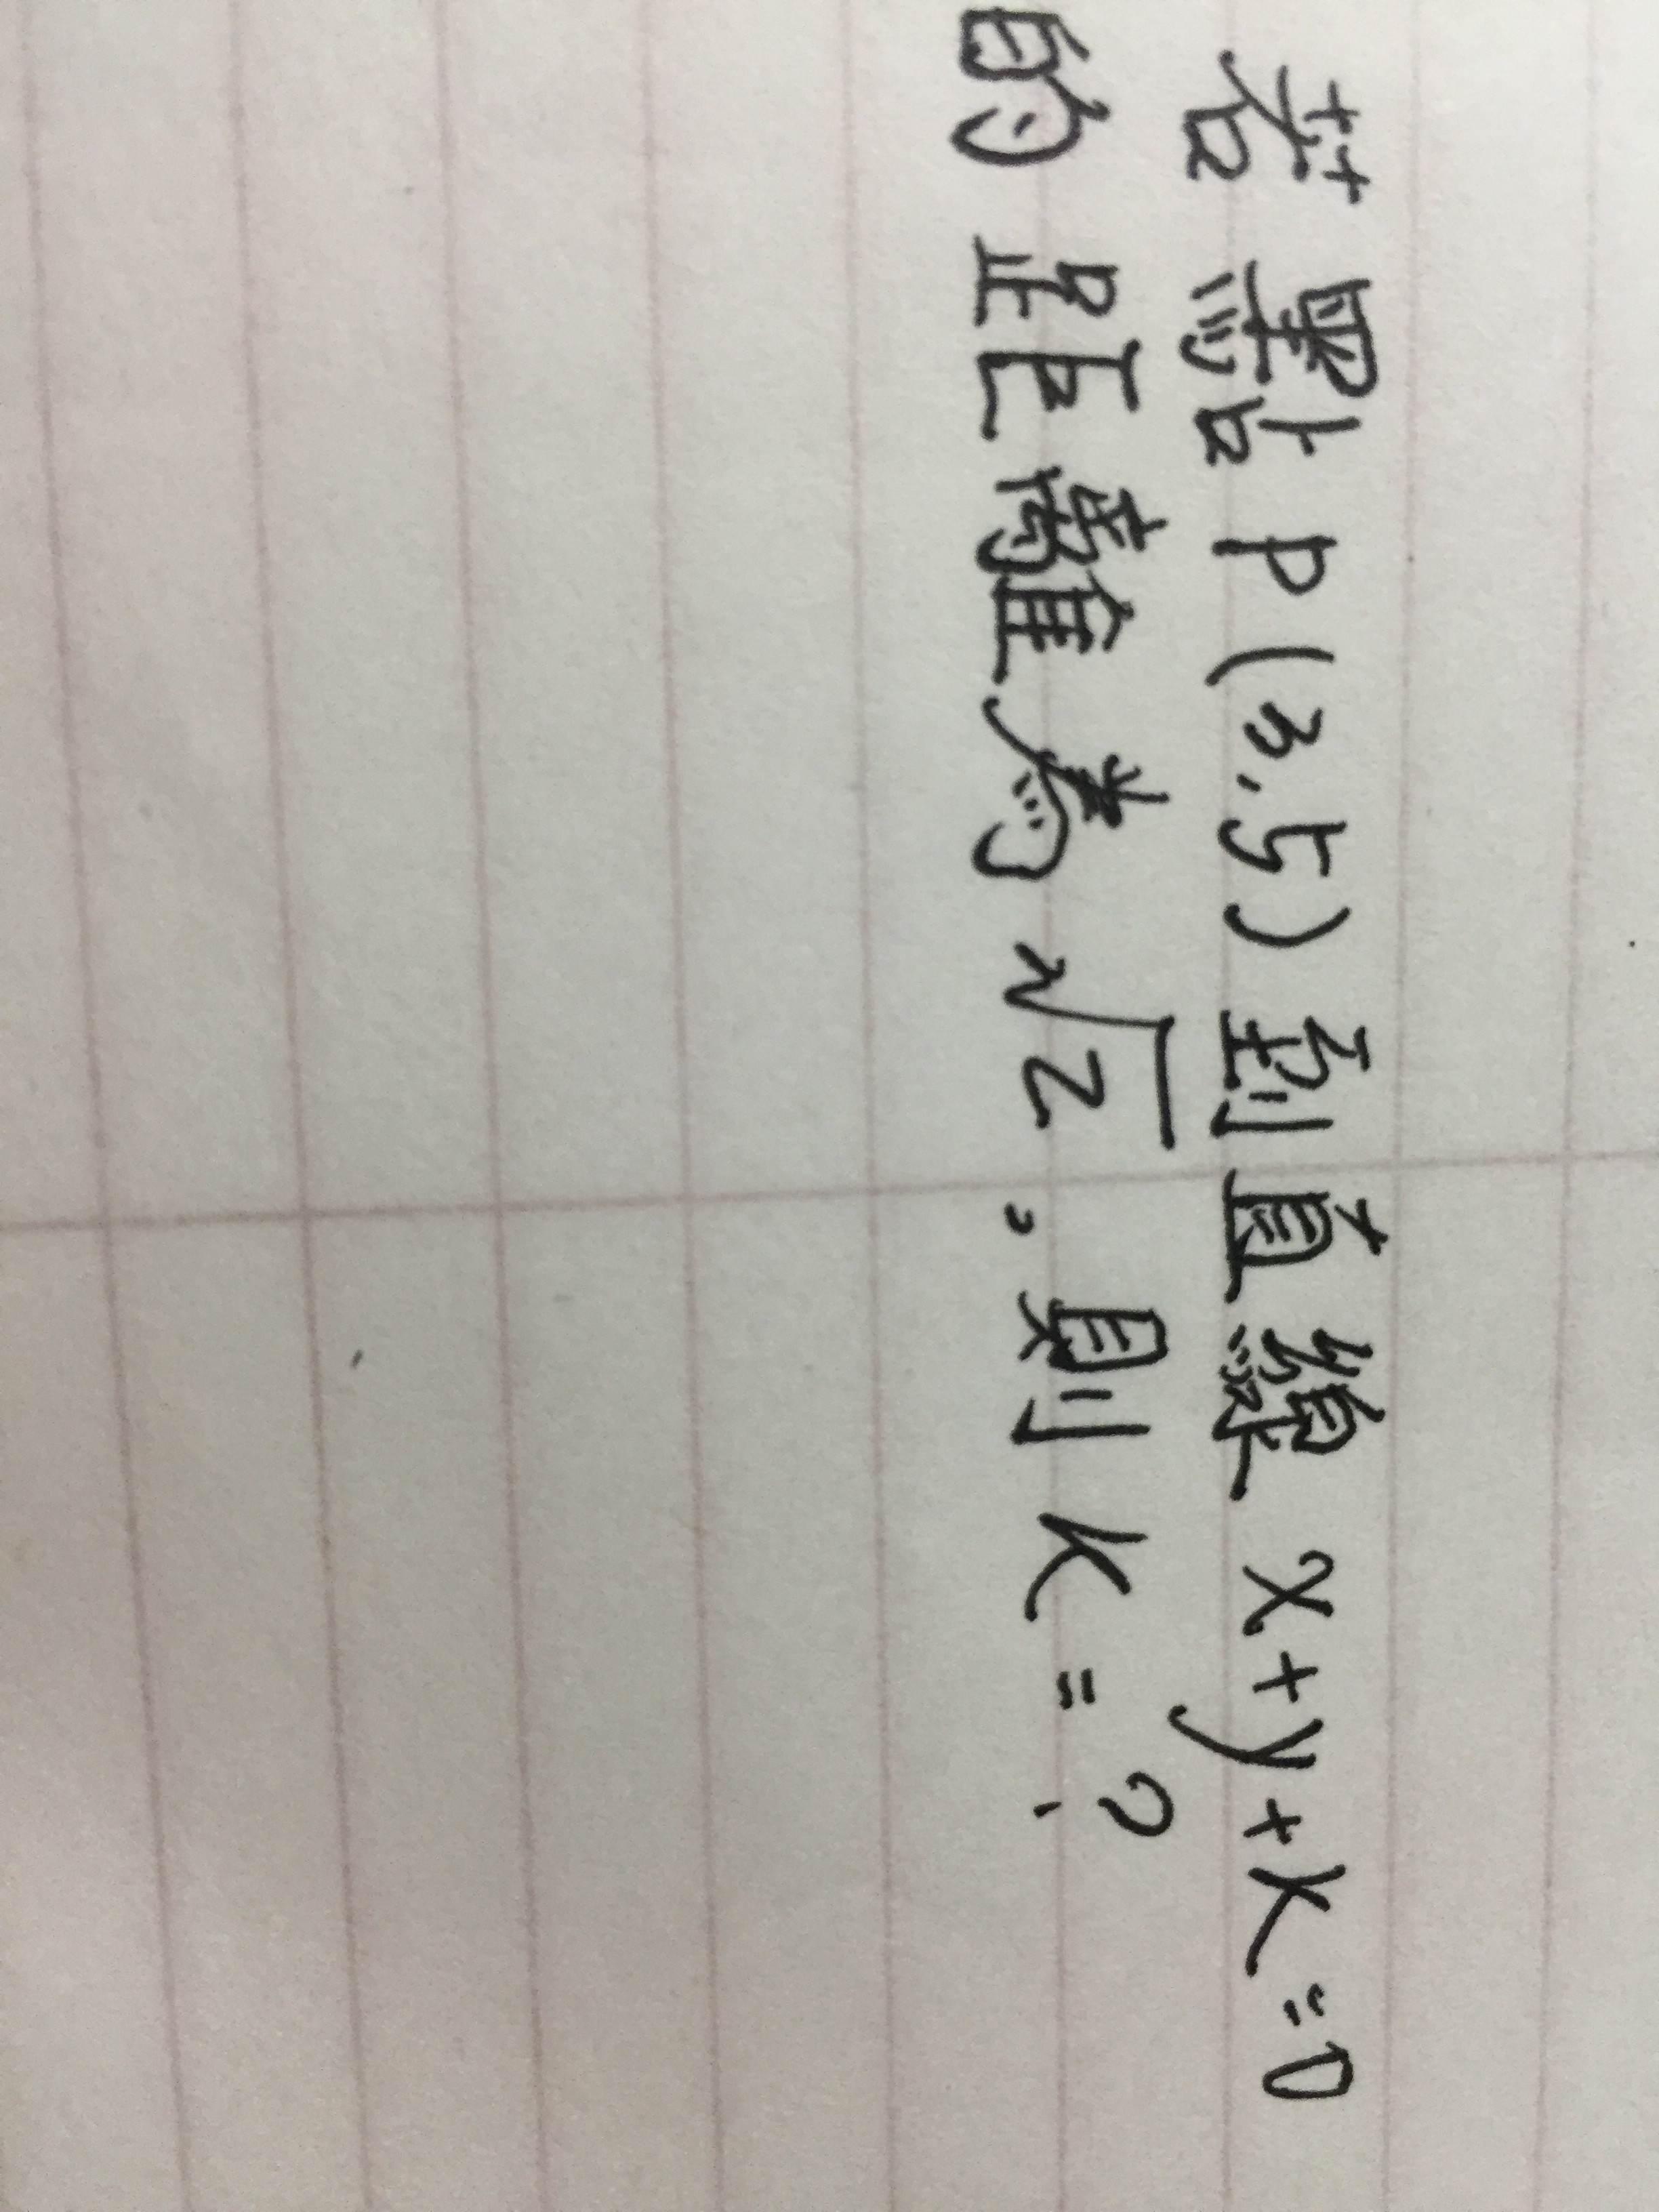 若點P(3,5)到直線x+y+k=0
的距離為√2,則k=?